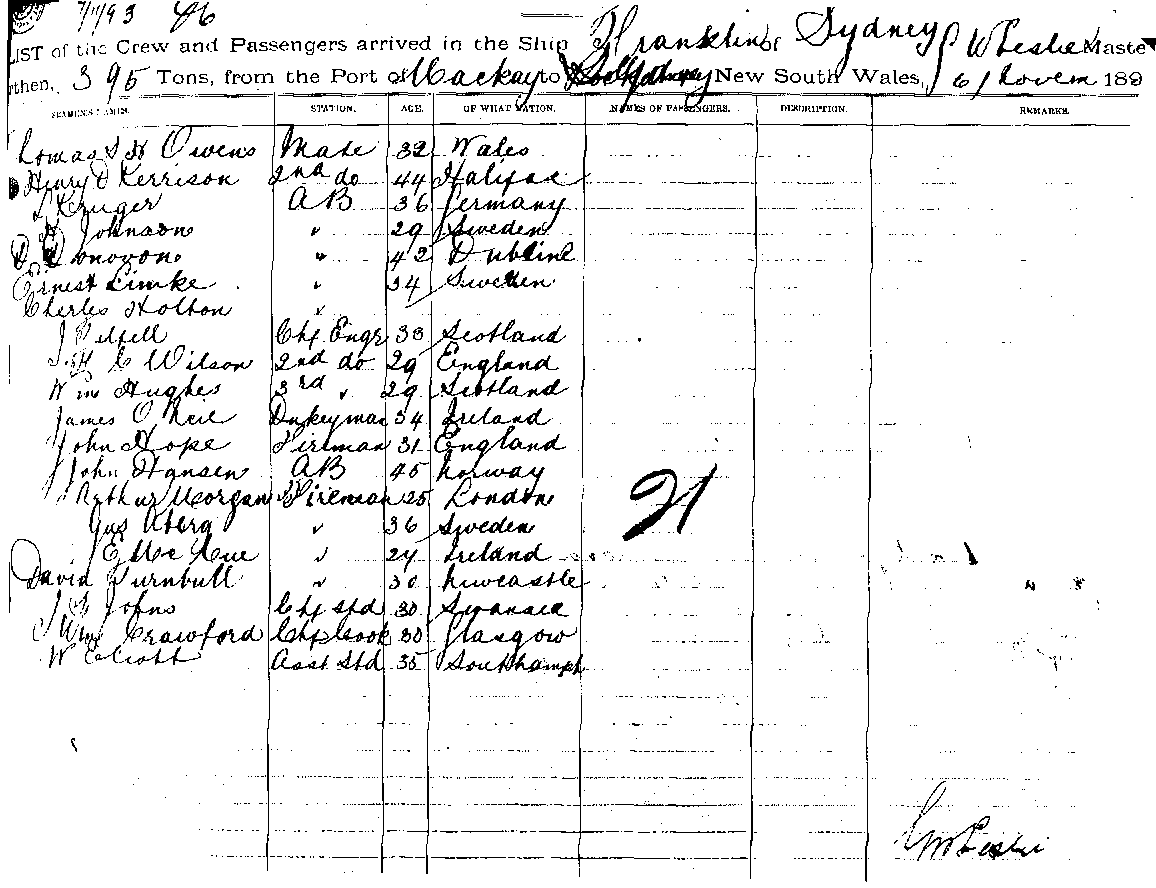 7/11/93 46
LIST of the Crew and Passengers arrived in the Ship Franklin of Sydney J W Leslie Maste
rthen, 395 Tons, from the Port of Mackay to New South Wales, 6/ Novem 189
SEAMEN'S NAMES. STATION. AGE. OF WHAT NATION. NAMES OF PASSENGERS. DESCRIPTION. REMARKS.
homas Owens Mate 32 Wales
Henry D Kerrison 2nd do 44 Halifax
L Kruger AB 36 Germany
Johnson " 29 Sweden
D Donovono " 42 Dubline
Ernest Limke " 34 Sweden
Cherles Holton "
J Chf Engr 33 Scotland
C Wilson 2nd do 29 England
Wm Hughes 3rd " 29 Scotland
James O Neil Dnkeyman 34 Ireland
John Hope Fireman 31 England
John Hansen AB 45 Norway
Arthur Morgan Fireman 25 London
Gus Aberg " 36 Sweden
E Mc " 24 Ireland
David Turnbull " 30 Newcastle
Johns Chf Std 30 Swansea
Wm Crawford Chf Cook 30 Glasgow
W Eliott Asst Std 35 Southampt
21
J W Leslie